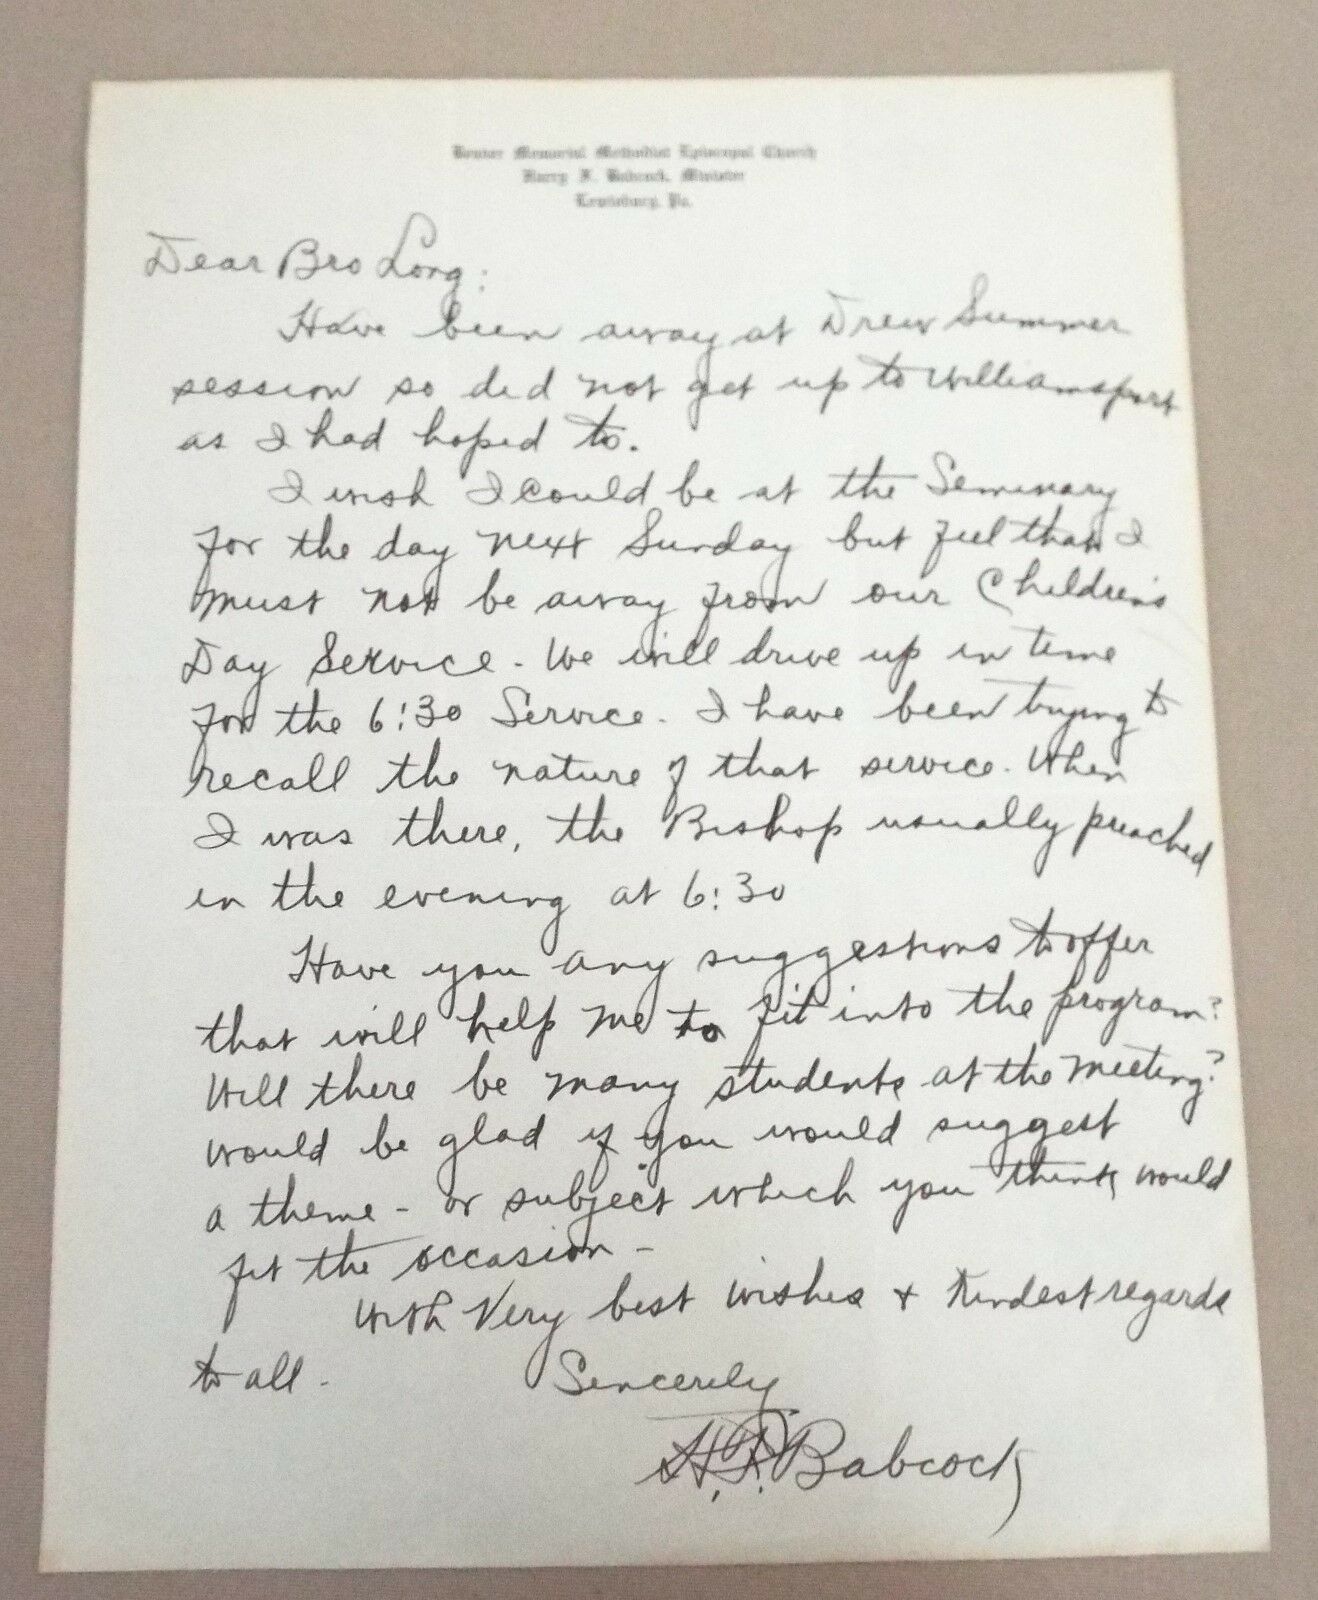 Memorial Methodist Episcopal Church
Harry F. Babcock, Minister
Lewisburg, Pa.
Dear Bro Long:
Have been away at Drew Summer
session so did not get up to Williamsport
as I had hoped to.
I wish I could be at the Seminary
for the day next Sunday but feel that I
must not be away from our Children's
Day Service - We will drive up in time
for the 6:30 Service. I have been trying to
recall the nature of that service. When
I was there, the Bishop usually preached
in the evening at 6:30
Have you any suggestions to offer
that will help me to fit into the program?
Will there be many students at the meeting?
Would be glad if you would suggest
a theme - or subject which you think would
fit the occasion -
With Very best wishes + kindest regards
to all -
Sincerely
H. F. Babcock